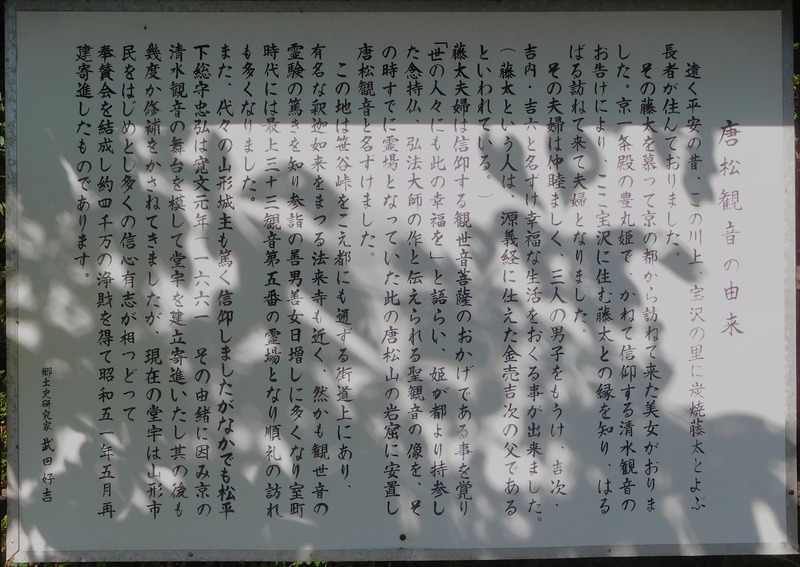 唐松観音の由来
遠く平安の昔、この川上、宝沢の里に炭焼藤太とよぶ
長者が住んでおりました。
その藤太を慕って京の都から訪ねて来た美女がおりま
した。京一条殿の豊丸姫で、かねて信仰する清水観音の
お告げにより、ここ宝沢に住む藤太との縁を知り、はる
ばる訪ねて来て夫婦となりました。
その夫婦は仲睦ましく、三人の男子をもうけ、吉次・
吉内・吉六と名ずけ幸福な生活をおくる事が出来ました。
(藤太という人は、源義経に仕えた金売吉次の父である
といわれている。)
藤太夫婦は信仰する観世音菩薩のおかげである事を覚り
「世の人々にも此の幸福を」と語らい、姫が都より持参し
た念持仏、弘法大師の作と伝えられる聖観音の像を、そ
の時すでに霊場となっていた此の唐松山の岩窟に安置し
唐松観音と名すけました。
この地は笹谷峠をこえ都にも通ずる街道上にあり、
有名な釈迦如来をまつる法来寺も近く、然かも観世音の
霊験の篤きを知り参詣の善男善女日増しに多くなり室町
時代には最上三十三観音第五番の霊場となり順礼の訪れ
も多くなりました。
また、代々の山形城主も篤く信仰しましたがなかでも松平
下総守忠弘は寛文元年(一六六一 その由緒に因み京の
清水観音の舞台を模して堂宇を建立寄進いたし其の後も
幾度か修補をかさねてきましたが、現在の堂宇は山形市
民をはじめとし多くの信心有志が相つどって
奉賛会を結成し約四千万の浄財を得て昭和五一年五月再
建寄進したものであります。
郷土史研究家 武田好吉